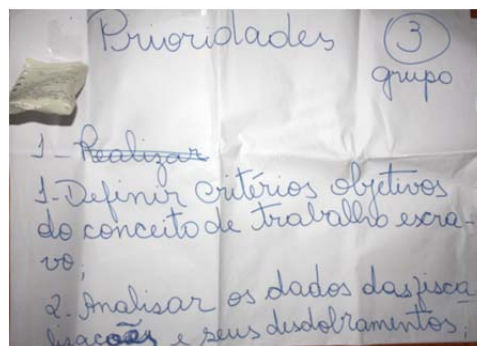 Prioridades 3
grupo
1- Realizar
1- Definir critérios objetivos
do conceito de trabalho escra-
vo;
2- Analisar os dados das fisca
lizações e seus desdobramentos;